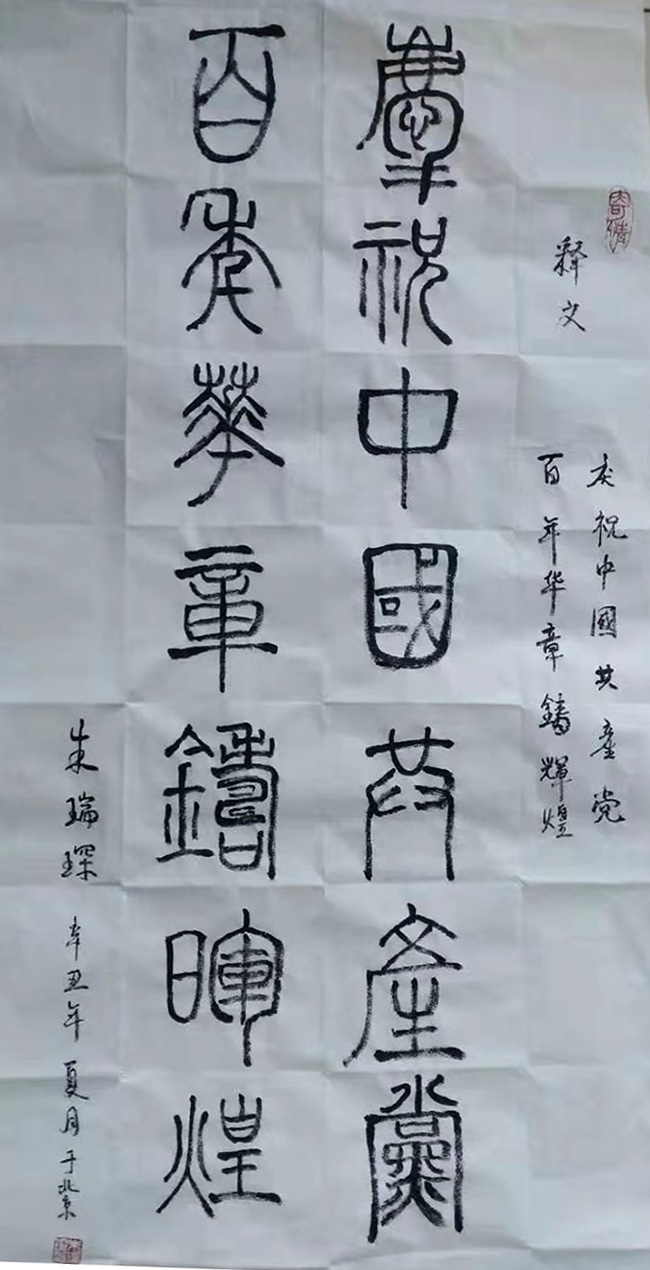 寄情
释文
庆祝中國共産党
百年华章鑄輝煌
慶祝中國共產黨
百年華章鑄暉煌
朱瑞琛 辛丑年夏月于北京